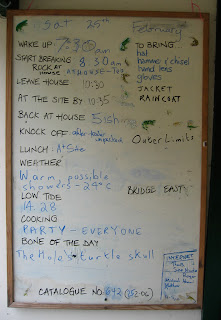 Sat 25th
February
WAKE UP - 7:30am
START BREAKING 8:30am
ROCK AT
HOUSE
LEAVE HOUSE 10:30
AT THE SITE BY 10:45
BACK AT HOUSE 5ish
KNOCK OFF
LUNCH: At Site
WEATHER
Warm, possible
showers - 24°C
LOW TIDE
14.28
COOKING
PARTY - EVERYONE
BONE OF THE DAY
The Hole's turtle skull
CATALOGUE NO. 642 (252-06)
TO BRING
hat
hammer & chisel
hand lens
gloves
JACKET
RAINCOAT
Outer Limits
BRIDGE EAST